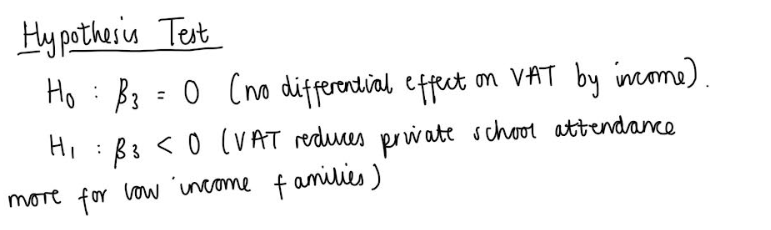 Hypothesis Test
H₀ : β₃ = 0 (no differential effect on VAT by income).
H₁ : β₃ < 0 (VAT reduces private school attendance
more for low income families)